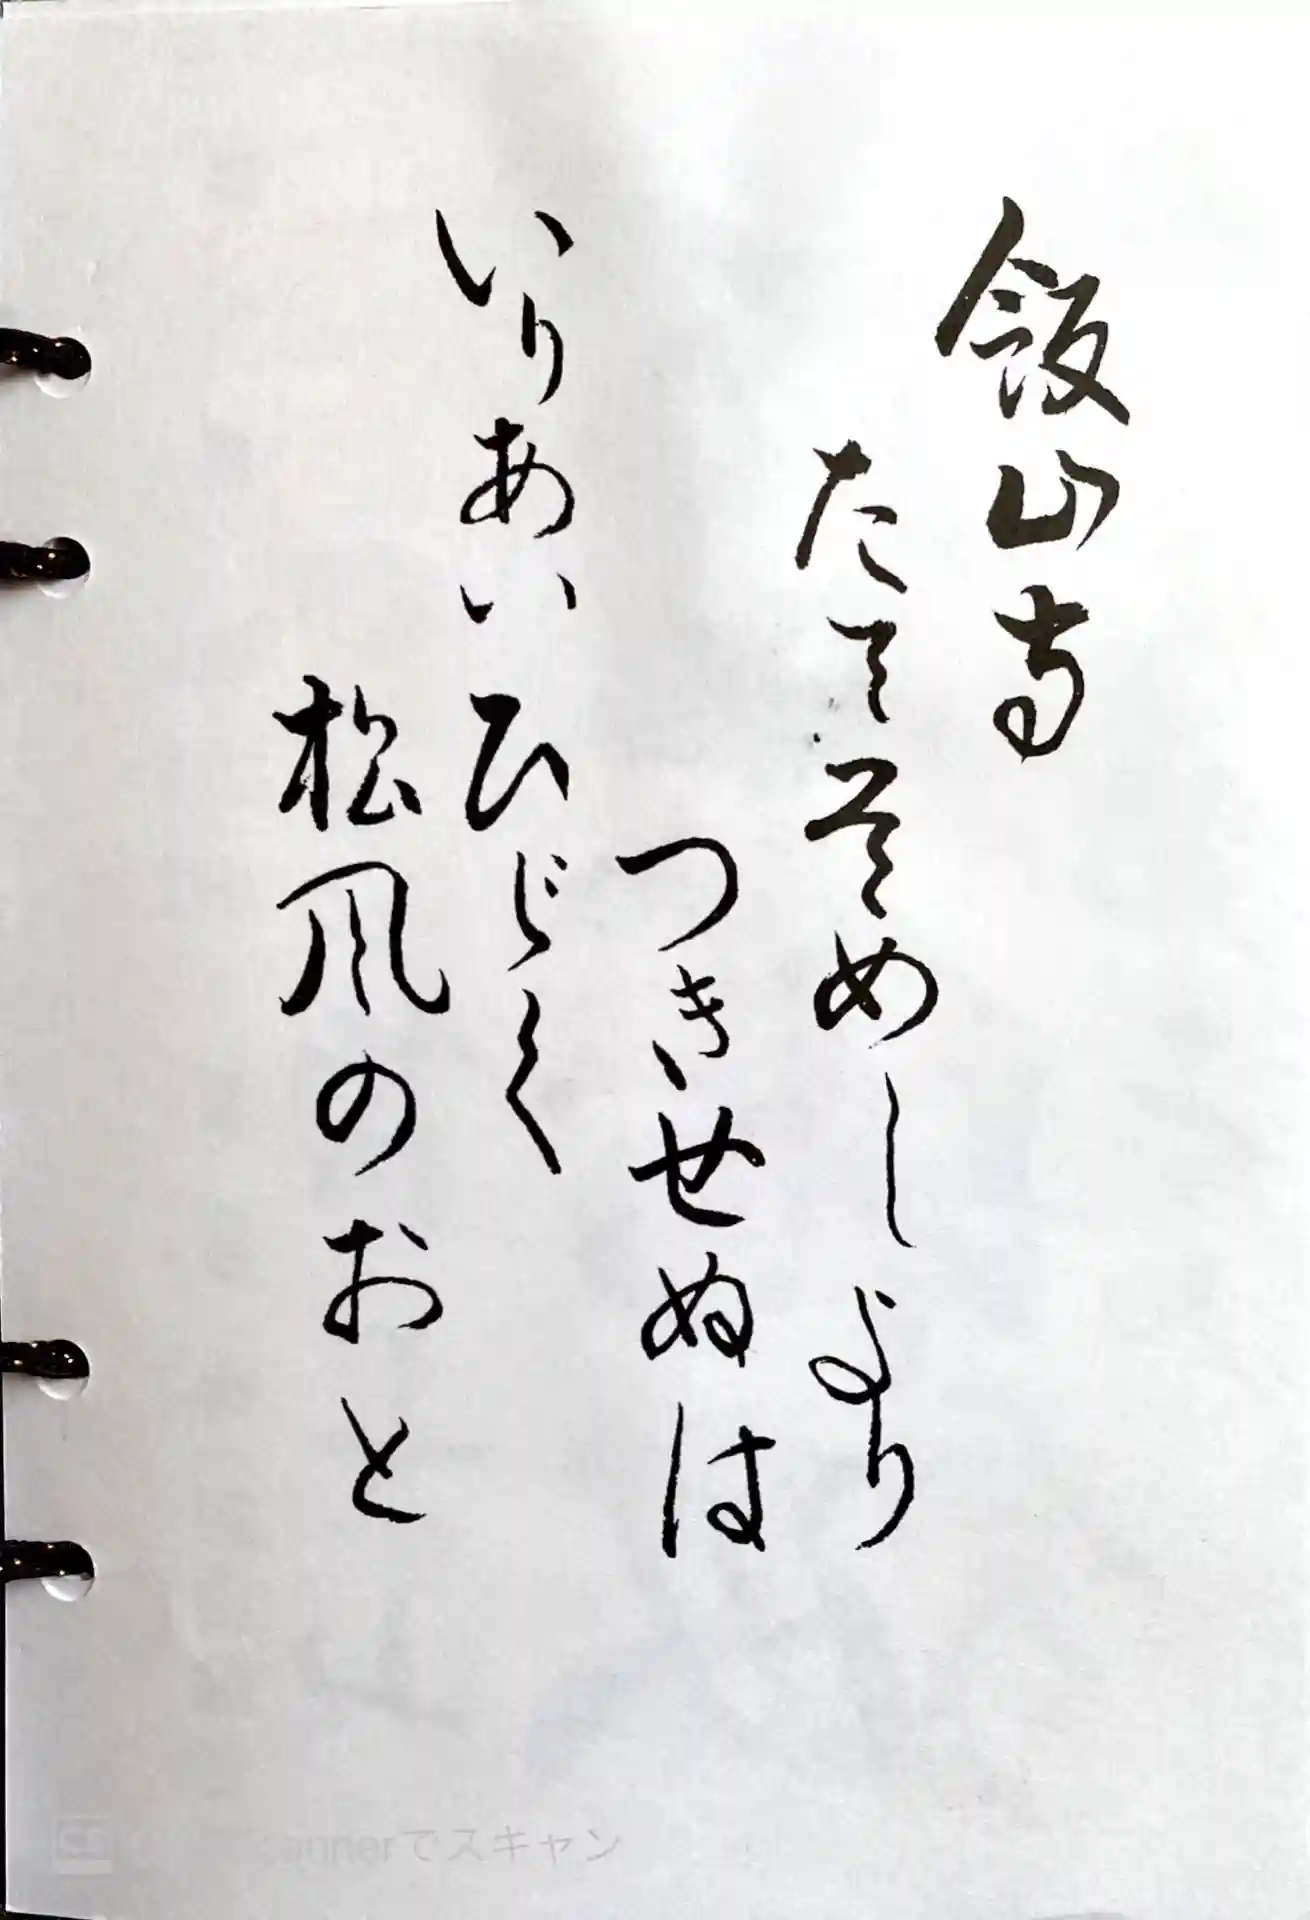 飯山寺
たてそめしより
つきせぬは
いりあいひびく
松風のおと
scannerでスキャン